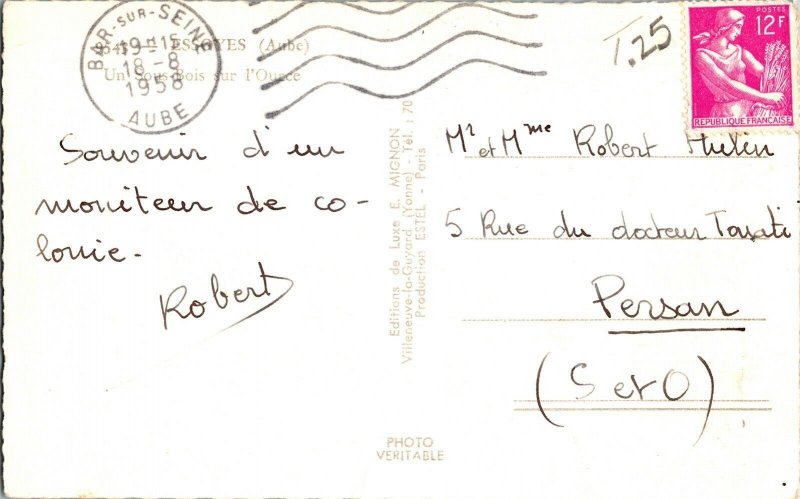 BAR-SUR-SEINE
18-8
1958
AUBE
ESSOYES (Aube)
Un Sous-Bois sur l'Ource
T.25
POSTES
12F
REPUBLIQUE FRANÇAISE
Souvenir d'un
moniteur de co-
lonie.
Robert
Editions de Luxe E. MIGNON
Villeneuve-la-Guyard (Yonne) - Tél. : 70
Production ESTEL - Paris
PHOTO
VERITABLE
Mr et Mme Robert Hulin
5 Rue du docteur
Persan
(S et O)